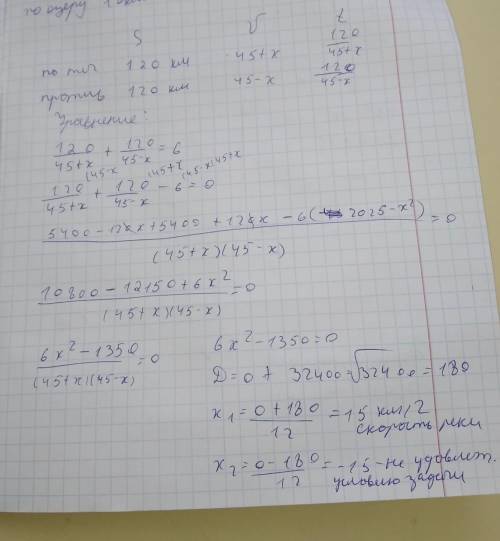 по озеру
S V t
по теч 120 км 45+x 120/(45+x)
против 120 км 45-x 120/(45-x)
Уравнение:
120/(45+x) + 120/(45-x) = 6
120/(45+x) (45-x + 120/(45-x) (45+x - 6 (45-x)(45+x = 0
(5400 - 120x + 5400 + 120x - 6(2025 - x²))/((45+x)(45-x)) = 0
(10800 - 12150 + 6x²)/((45+x)(45-x)) = 0
(6x² - 1350)/((45+x)(45-x)) = 0
6x² - 1350 = 0
D = 0 + 32400 = √32400 = 180
x₁ = (0 + 180)/12 = 15 км/ч
скорость реки
x₂ = (0 - 180)/12 = -15 - не удовлет.
условию задачи